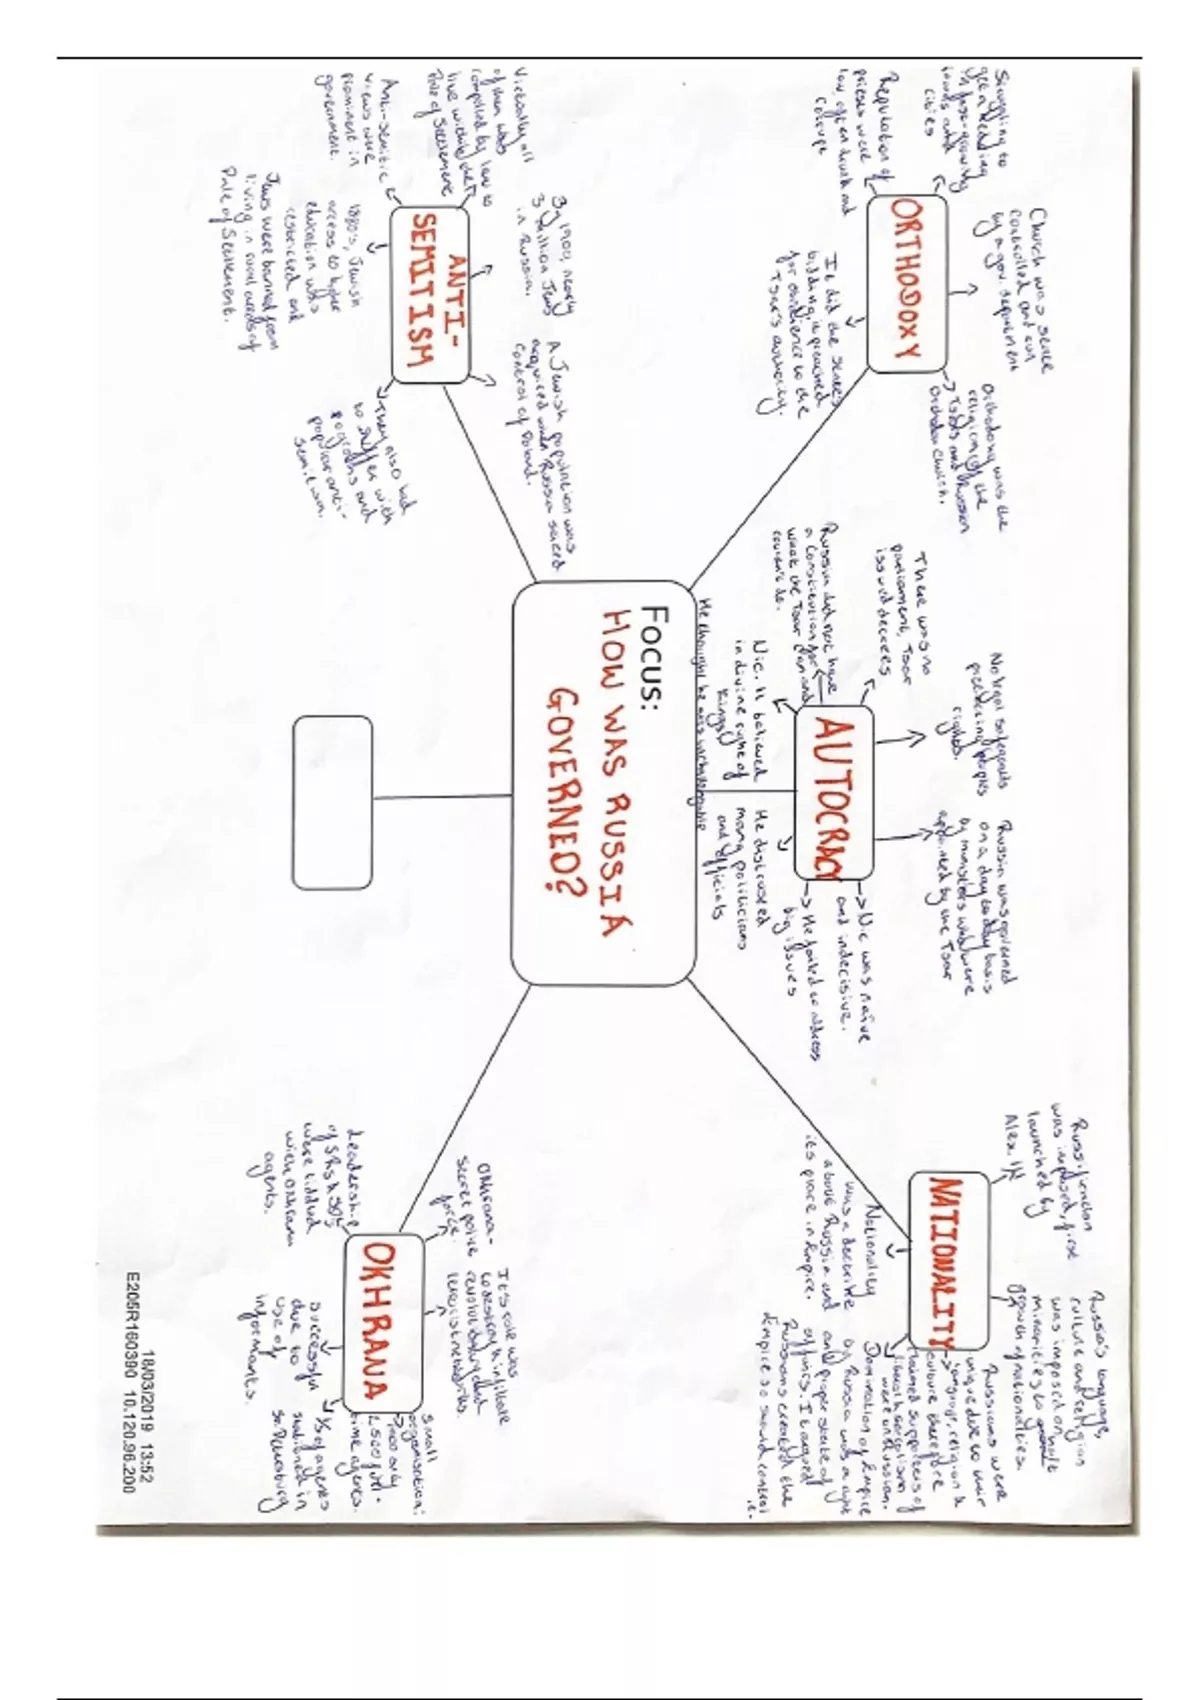 FOCUS:
HOW WAS RUSSIA
GOVERNED?
ORTHODOXY
Struggling to
get a
in fast-growing
towns and
cities
Church was state
controlled and run
by a gov. department
Orthodoxy was the
religion of the
Tsars and Russian
Orthodox Church.
Reputation of
priests were
low often drunk and
corrupt
It did the state's
bidding, it preached
for obedience to the
Tsar's authority.
AUTOCRACY
There was no
parliament, Tsar
issued decrees
No legal safeguards
protecting peoples
rights.
Russia was governed
on a day to day basis
by ministers who were
appointed by the Tsar
Russia did not have
a constitution for
what the Tsar can and
couldn't do.
Nic. II believed
in divine right of
Kings
He thought he was unchallengeable
He distrusted
many politicians
and officials
Nic was naive
and indecisive.
He failed to address
big issues
NATIONALITY
Russification
was imposed, first
launched by
Alex. III
Russia's language,
culture and religion
was imposed on
minorities to halt
growth of nationalities.
Russians were
unique due to their
language, religion &
culture therefore
claimed supporters of
liberalism & socialism
were un-Russian.
Nationality
was a doctrine
above Russia and
its place in Empire.
Domination of Empire
by Russia was a right
and proper state of
affairs. It argued
Russians created the
Empire so should control
it.
ANTI-
SEMITISM
Virtually all
of them was
compelled by law to
live within the
Pale of Settlement
By 1900, nearly
5 million Jews
in Russia.
A Jewish population was
acquired when Russia seized
control of Poland.
Anti-semitic
views were
prominent in
government.
1880's, Jewish
access to higher
education was
restricted and
Jews were banned from
living in rural areas of
Pale of Settlement.
They also had
to suffer with
pogroms and
popular anti-
semitism.
OKHRANA
Okhrana-
secret police
force.
It's role was
to destroy & infiltrate
revolutionary and
terrorist networks.
Small
organisation:
only
2,500 full-
time agents.
Leadership
of SRs & SD's
were riddled
with Okhrana
agents.
successful
due to
use of
informants.
1/3 of agents
stationed in
St. Petersburg
18/03/2019 13:52
E205R160390 10.120.96.200